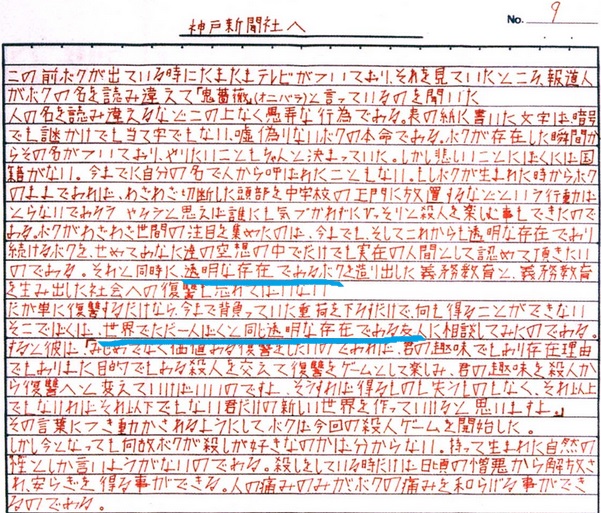 No. 9
神戸新聞社へ
この前ボクが出ている時にたまたまテレビがついており、それを見ていたところ、報道人
がボクの名を読み違えて「鬼薔薇」(オニバラ)と言っているのを聞いた
人の名を読み違えるなどこの上なく愚弄な行為である。表の紙に書いた文字は、暗号
でも謎かけでも当て字でもない、嘘偽りないボクの本命である。ボクが存在した瞬間か
らその名がついており、やりたいこともちゃんと決まっていた。しかし悲しいことにぼくには国
籍がない。今までに自分の名で人から呼ばれたこともない。もしボクが生まれた時からボク
のままであれば、わざわざ切断した頭部を中学校の正門に放置するなどという行動は
とらないであろう やろうと思えば誰にも気づかれずにひっそりと殺人を楽しむ事もできたので
ある。ボクがわざわざ世間の注目を集めたのは、今までも、そしてこれからも透明な存在であり
続けるボクを、せめてあなた達の空想の中でだけでも実在の人間として認めて頂きたい
のである。それと同時に、透明な存在であるボクを造り出した義務教育と、義務教育
を生み出した社会への復讐も忘れてはいない
だが単に復讐するだけなら、今まで背負っていた重荷を下ろすだけで、何も得ることができない
そこでぼくは、世界でただ一人ぼくと同じ透明な存在である友人に相談してみたのである。
すると彼は、「みじめでなく価値ある復讐をしたいのであれば、君の趣味でもあり存在理由
でもありまた目的でもある殺人を交えて復讐をゲームとして楽しみ、君の趣味を殺人か
ら復讐へと変えていけばいいのですよ、そうすれば得るものも失うものもなく、それ以上
でもなければそれ以下でもない君だけの新しい世界を作っていけると思いますよ。」
その言葉につき動かされるようにしてボクは今回の殺人ゲームを開始した。
しかし今となっても何故ボクが殺しが好きなのかは分からない。持って生まれた自然の
性としか言いようがないのである。殺しをしている時だけは日頃の憎悪から解放さ
れ、安らぎを得る事ができる。人の痛みのみがボクの痛みを和らげる事ができ
るのである。